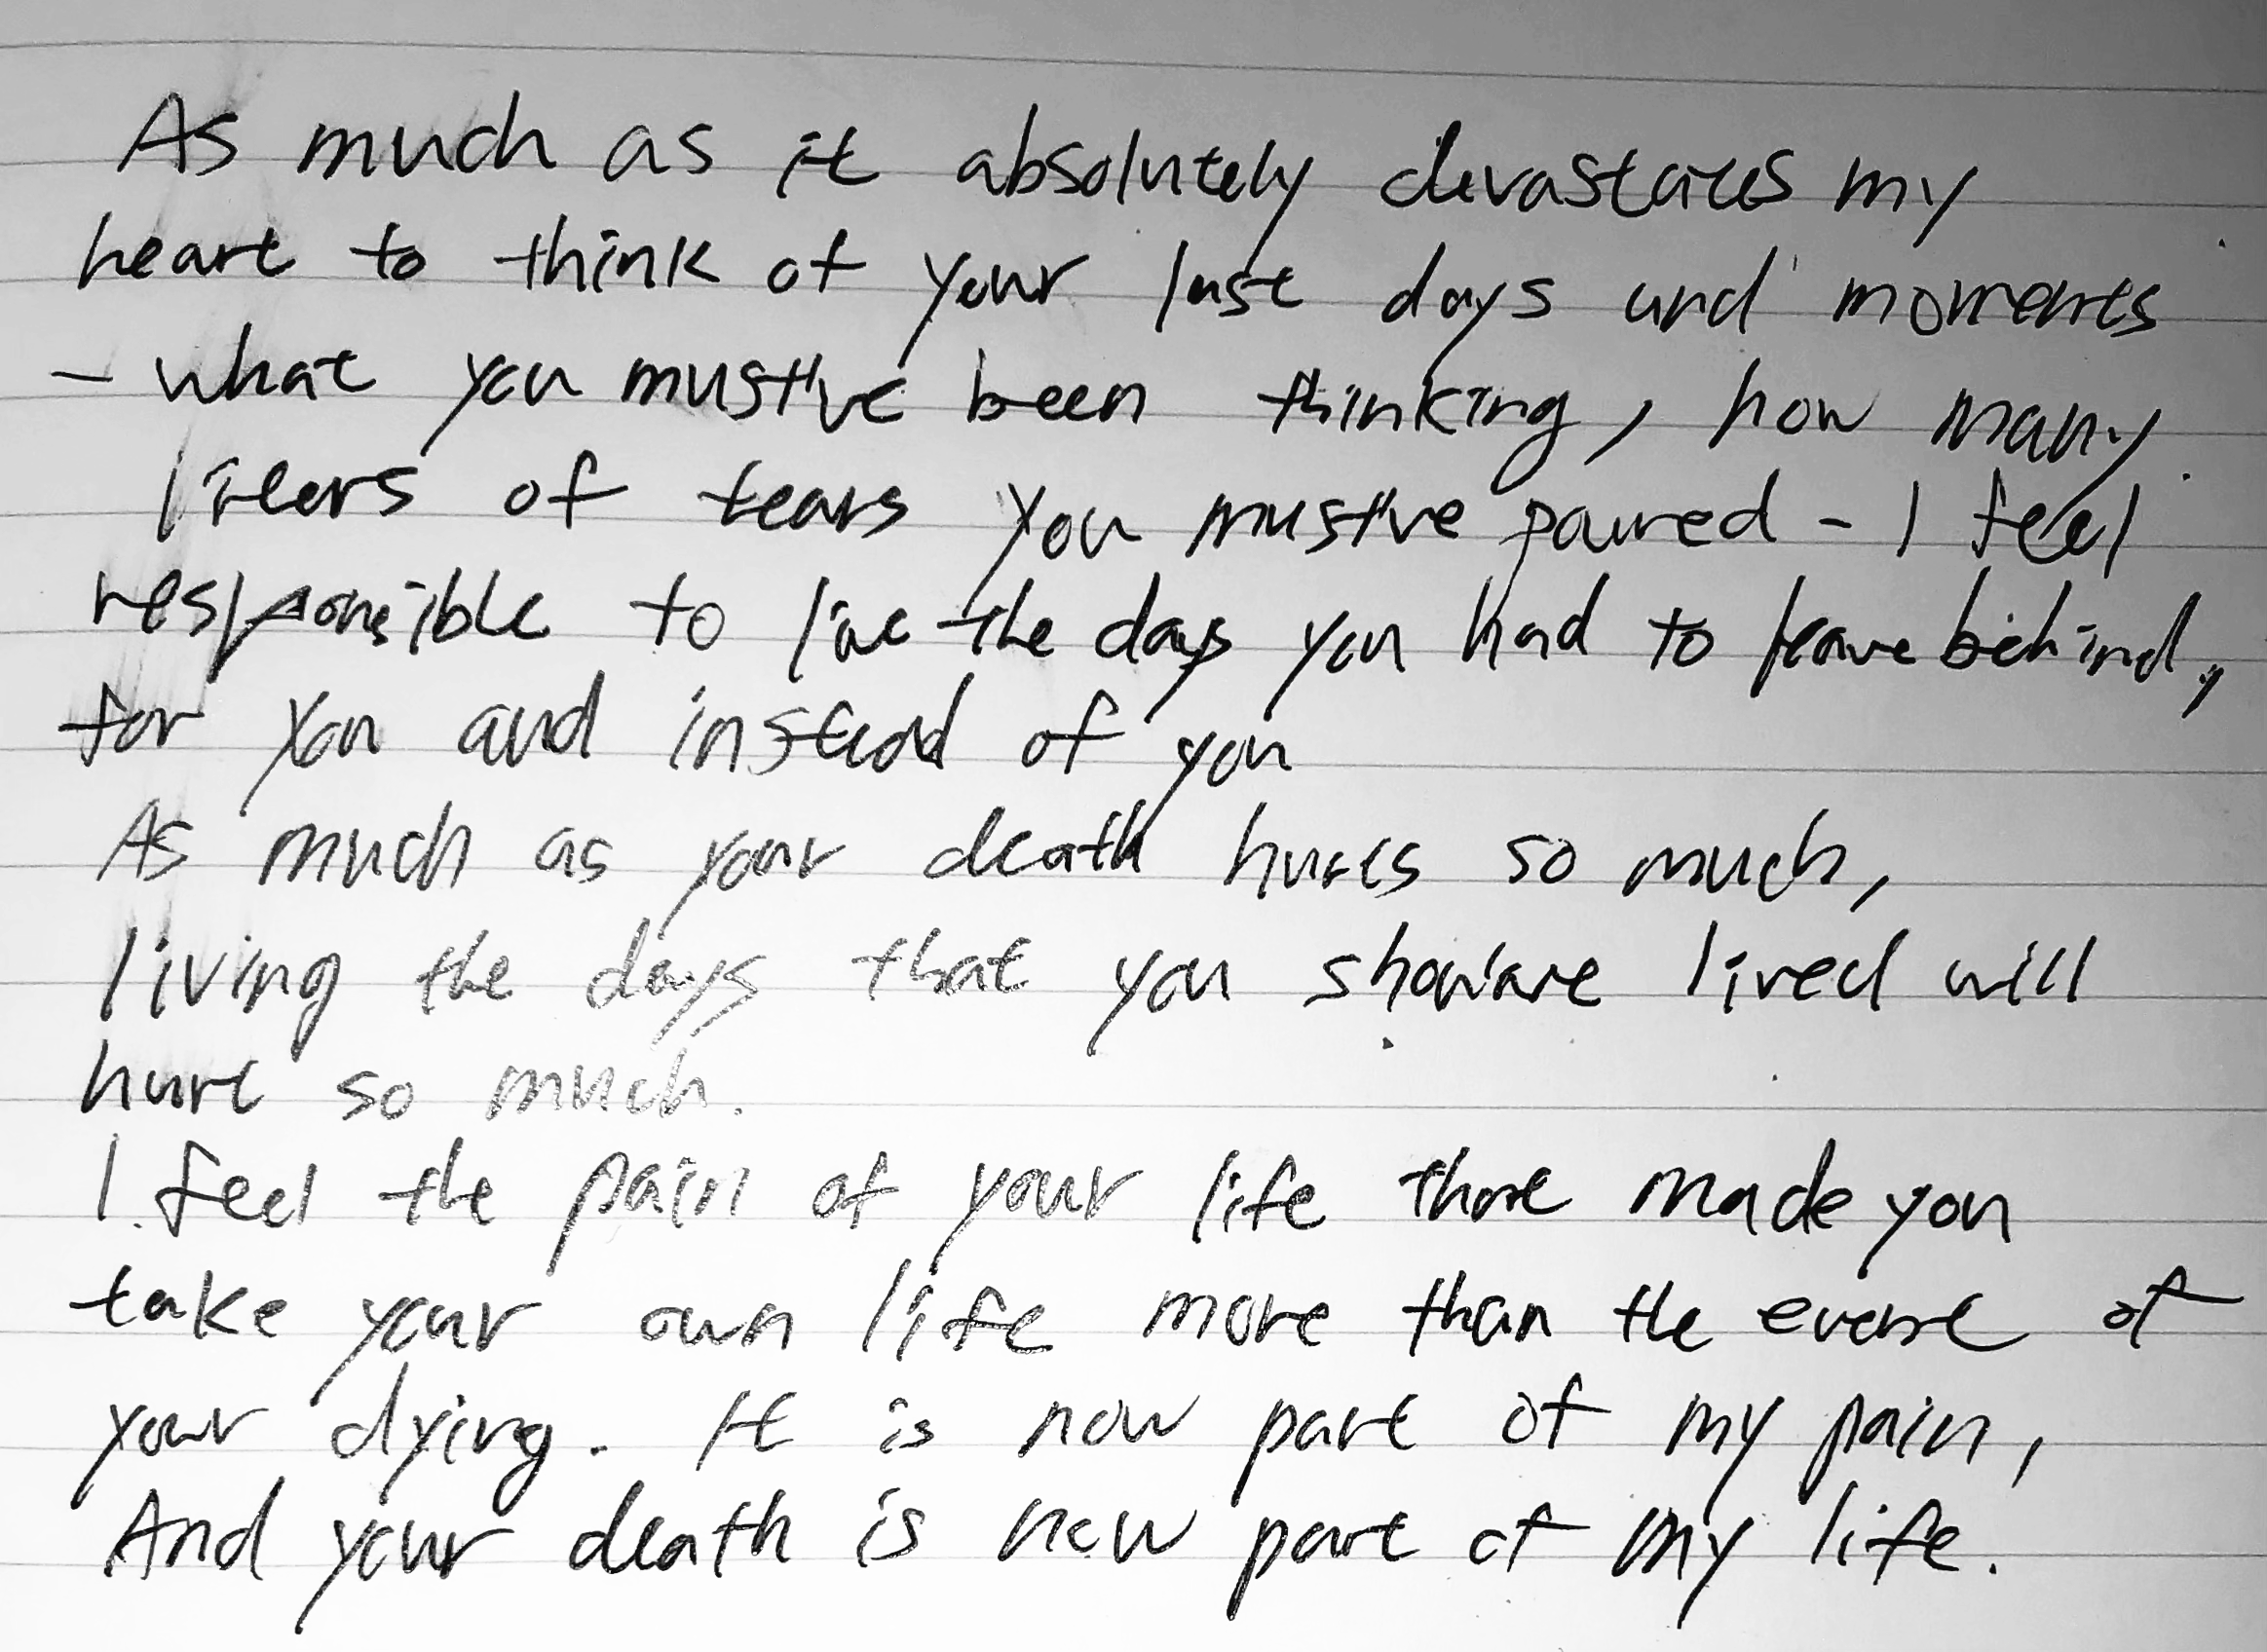 As much as it absolutely devastates my
heart to think of your last days and moments
- what you must've been thinking, how many
liters of tears you must've poured - I feel
responsible to live the days you had to leave behind,
for you and instead of you
As much as your death hurts so much,
living the days that you should've lived will
hurt so much.
I feel the pain of your life that made you
take your own life more than the event of
your dying. It is now part of my pain,
And your death is now part of my life.